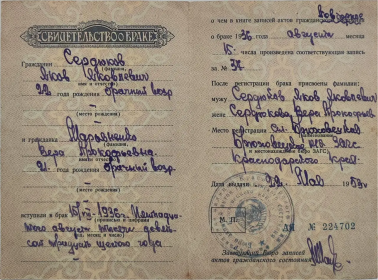 СВИДЕТЕЛЬСТВО О БРАКЕ
Гражданин Сердюков
(фамилия,
Яков Яковлевич
имя и отчество)
22 года рождения брачный возр.
(место рождения)
и гражданка
(фамилия,
Вера Прокофьевна
имя и отчество)
21 года рождения брачный возр.
(место рождения)
вступили в брак
(прописью и цифрами
ного августа тысяча девять
год, месяц и число)
сот тридцать шестого года
о чем в книге записей актов гражданского
о браке 1936 года августа
месяца
15 числа произведена соответствующая запись
за № 37
После регистрации брака присвоены фамилии:
мужу Сердюков Яков Яковлевич
жене Сердюкова Вера Прокофьев.
Место регистрации
и местонахождение бюро ЗАГС)
Краснодарского края
Дата выдачи 22 мая 1953 г.
М. П.
№ 224702
Заведующий бюро записей
актов гражданского состояния